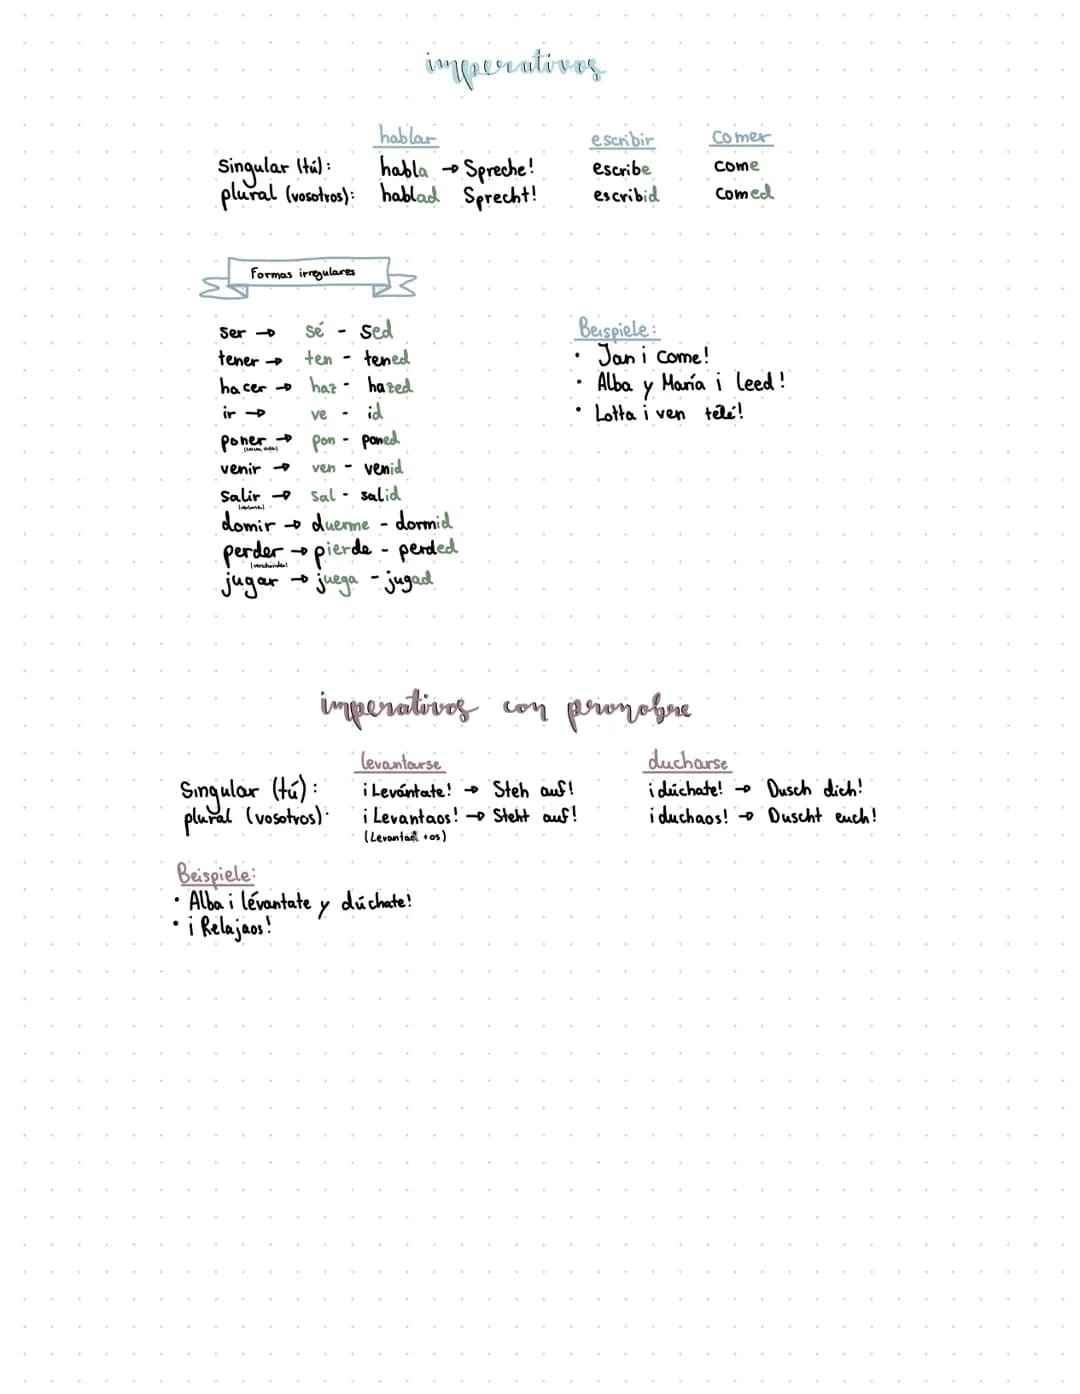 imperativos
hablar escribir comer
Singular (tú): habla → Spreche! escribe come
plural (vosotros): hablad Sprecht! escribid comed
Formas irregulares
ser → sé - sed
tener → ten - tened
hacer → haz - hazed
ir → ve - id
poner → pon - poned
venir → ven - venid
salir → sal - salid
domir → duerme - dormid
perder → pierde - perded
(verschwinden)
jugar → juega - jugad
Beispiele:
• Jan ¡ come!
• Alba y María ¡ leed!
• Lotta ¡ ven télé!
imperativos con pronobre
levantarse ducharse
Singular (tú): ¡Levántate! → Steh auf! ¡dúchate! → Dusch dich!
plural (vosotros): ¡Levantaos! → Steht auf! ¡duchaos! → Duscht euch!
(Levantad +os)
Beispiele:
• Alba ¡ lévantate y dúchate!
• ¡ Relajaos!